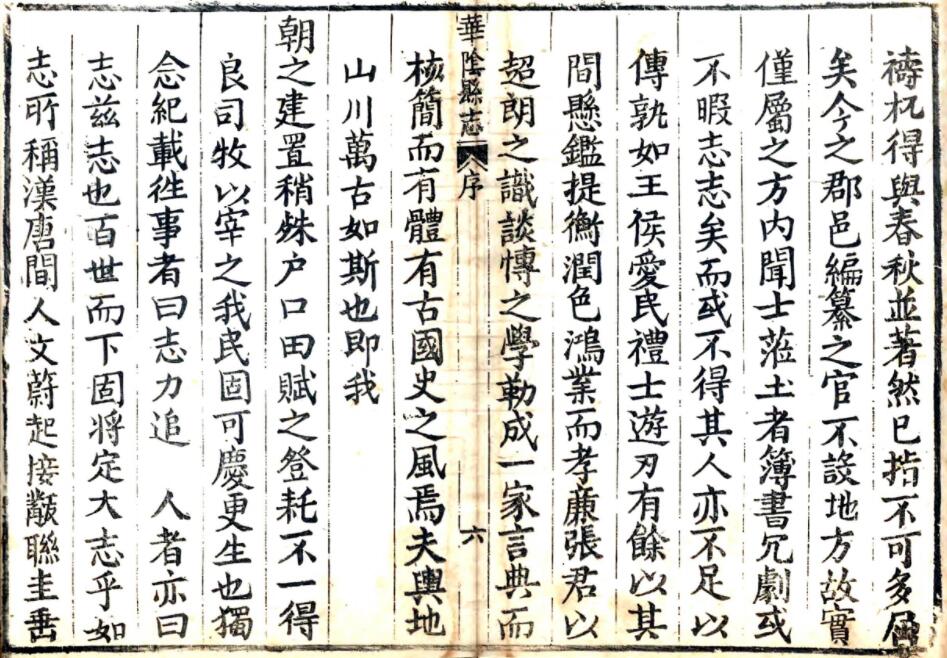 檮杌得與春秋並著然已指不可多屈
矣今之郡邑編纂之官不設地方故實
僅屬之方内聞士蒞土者簿書冗劇或
不暇志志矣而或不得其人亦不足以
傳孰如王侯愛民禮士遊刃有餘以其
間懸鑑提衡潤色鴻業而孝廉張君以
超朗之識談博之學勒成一家言典而
華陰縣志 序 六
核簡而有體有古國史之風焉夫輿地
山川萬古如斯也即我
朝之建置稍殊户口田賦之登耗不一得
良司牧以宰之我民固可慶更生也獨
念紀載徃事者曰志力追 人者亦曰
志兹志也百世而下固將定大志乎如
志所稱漢唐間人文蔚起接黻聯圭垂